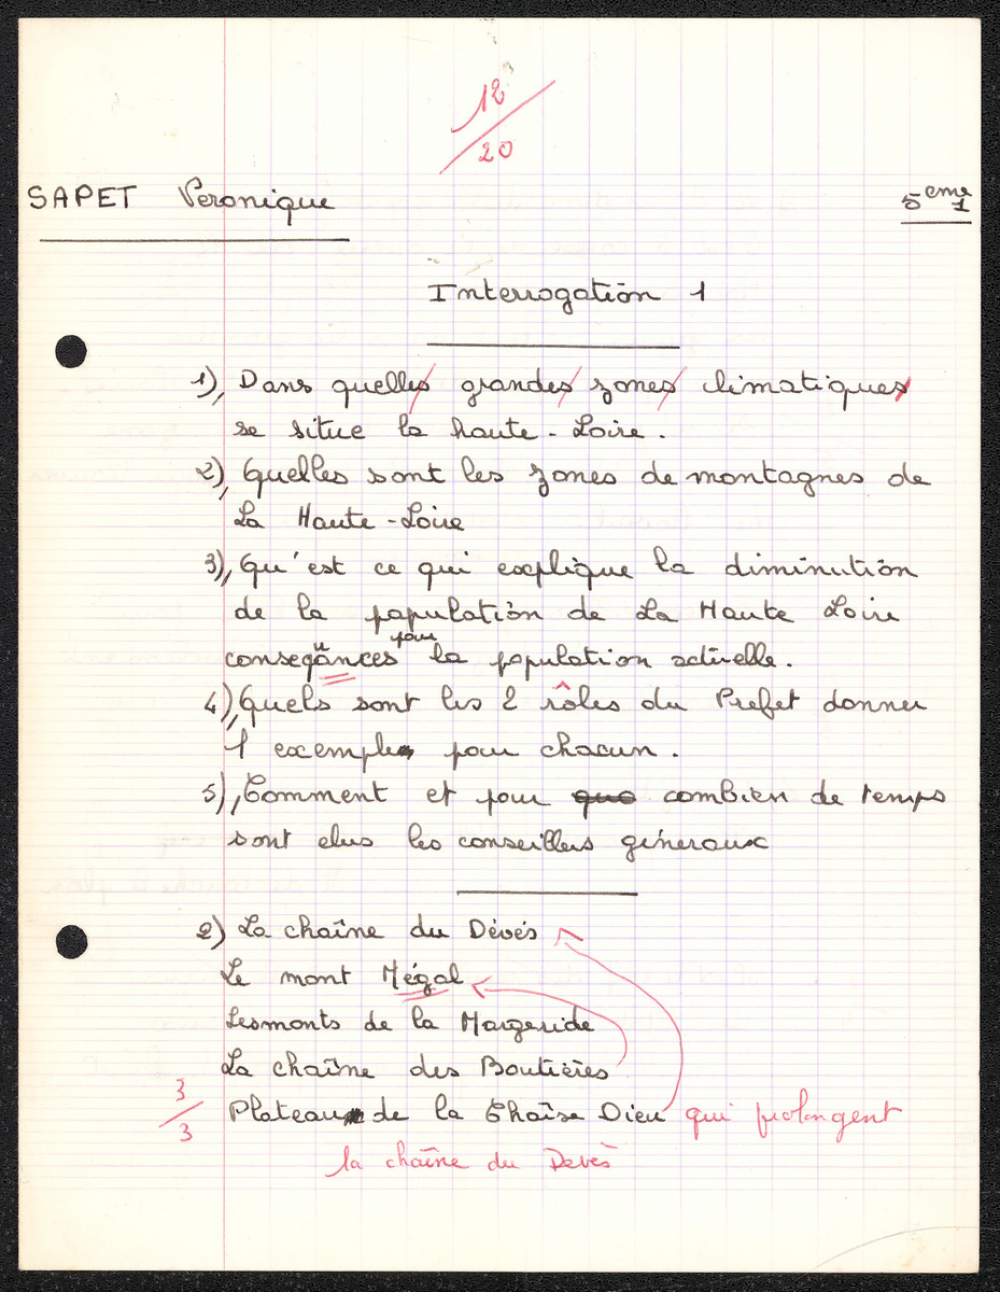 12
20
SAPET Veronique
5eme 1
Interrogation 1
1), Dans quelles grandes zones climatiques
se situe la haute-Loire.
2), Quelles sont les zones de montagnes de
La Haute-Loire
3), Qu'est ce qui explique la diminution
de la population de La Haute Loire
pour
consequances la population actuelle.
4), Quels sont les 2 rôles du Prefet donner
1 exemple pour chacun.
5), Comment et pour que combien de temps
sont elus les conseillers géneraux
2) La chaîne du Dévés
Le mont Mégal
Les monts de la Margeride
La chaîne des Boutières
Plateau de la Chaîse Dieu qui prolongent
3
3
la chaîne du Devès